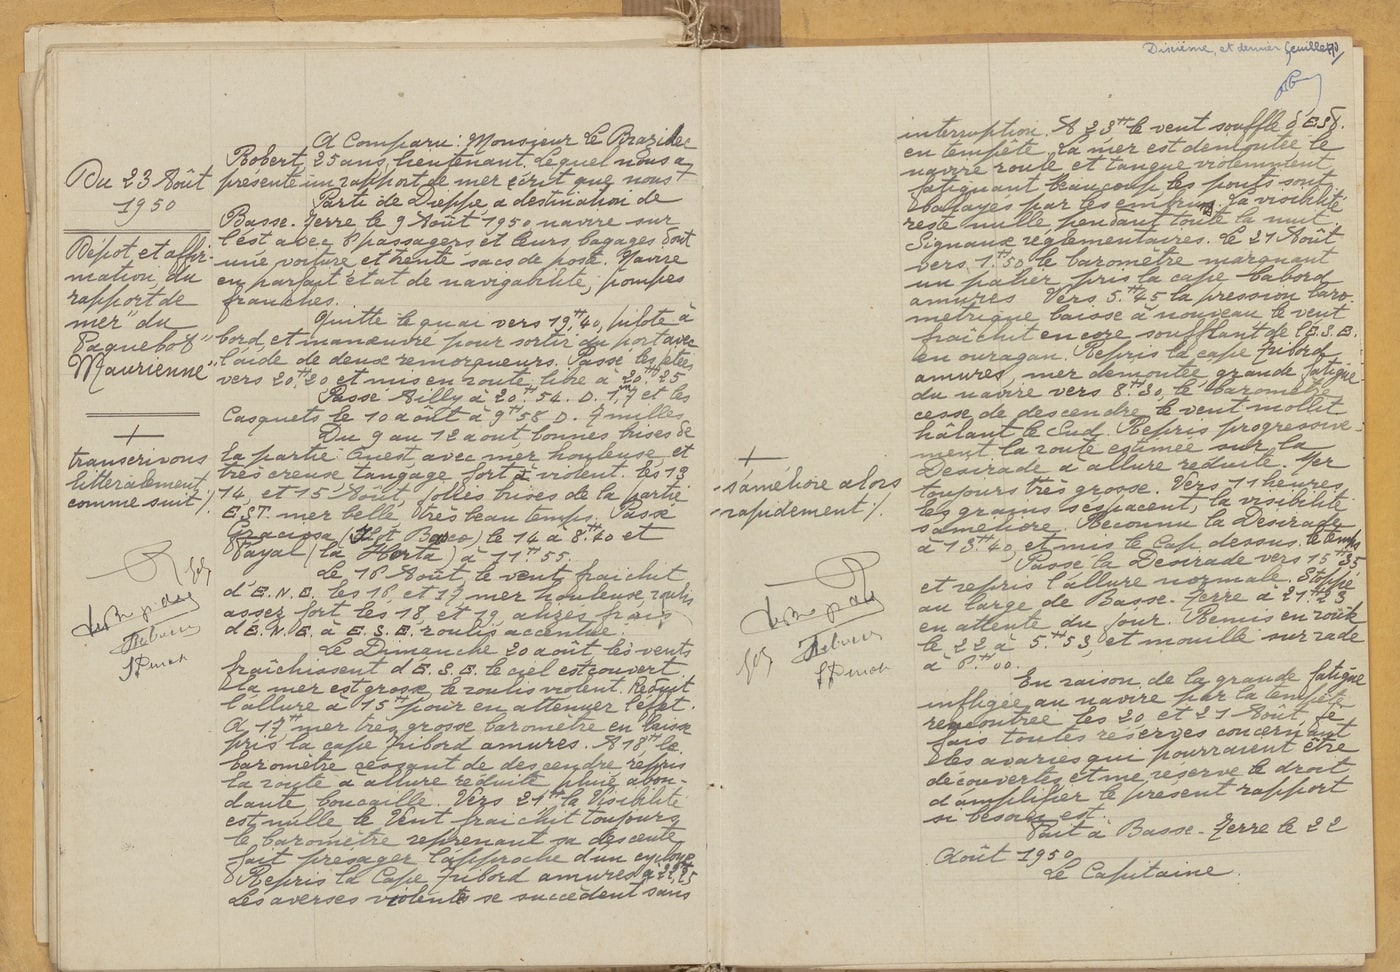 Du 23 Août
1950
Dépot et affir-
mation du
rapport de
mer" du
Paquebot"
Maurienne"
+
transcrivons
littéralement
comme suit ⁒
A Comparu : Monsieur Le Brazidec
Robert, 25 ans, lieutenant. Lequel nous a
présenté un rapport de mer écrit que nous +
Parti de Dieppe a destination de
Basse-Terre le 9 Août 1950 navire sur
l'est avec 8 passagers et leurs bagages dont
une voiture et trente sacs de poste. Navire
en parfait état de navigabilité, pompes
franches.
Quitté le quai vers 19H,40, pilote à
bord, et manœuvré pour sortir du port avec
l'aide de deux remorqueurs. Passé les jetées
vers 20H,20 et mis en route libre à 20H,25
Passé Ailly à 20H 54. D. 1,7 et les
Casquets le 10 août à 9H58 D. 7 milles
Du 9 au 12 aout bonnes brises de
la partie Ouest avec mer houleuse et
très creuse tangage fort à violent. les 13
14, et 15 Août, folles brises de la partie
EST. mer belle très beau temps. Passé
Graciosa (Ilôt Baco) le 14 à 8H.40 et
Fayal (la Horta) à 11H 55.
Le 16 Août, le vent fraichit
d'E.N.E. les 16 et 17 mer houleuse roulis
assez fort les 18, et 19 alizés frais
d'E.N.E. à E.S.E. roulis accentué.
Le Dimanche 20 août les vents
fraîchissent d'E.S.E. le ciel est couvert.
la mer est grosse, le roulis violent. Réduit
l'allure à 15H pour en attenuer l'effet.
A 17H mer très grosse baromètre en baisse
pris la cape Tribord amures. A 18H le
baromètre cessant de descendre repris
la route à allure réduite pluie abon-
dante, boucaille. Vers 21H la Visibilité
est nulle le Vent fraichit toujours
le baromètre reprenant sa descente
fait présager l'approche d'un cyclone
Repris la Cape Tribord amures à 22H,25
Les averses violentes se succèdent sans
Dixième, et dernier feuillet
+
s'améliore alors
rapidement ⁒
interruption. A 23H le vent souffle d'ESE.
en tempête, la mer est demontée le
navire roule et tangue violemment
fatiguant beaucoup les ponts sont
balayés par les embruns. la visibilité
reste nulle, pendant toute la nuit.
Signaux réglementaires. Le 21 Août
vers 1H.50 le baromètre marquant
un palier pris la cape babord
amures Vers 5H.45 la pression baro-
métrique baisse à nouveau le vent
fraîchit encore soufflant de l'E.S.E.
en ouragan. Repris la cape Tribord
amures, mer demontée grande fatigue
du navire vers 8H.30, le baromètre
cesse de descendre le vent mollit
hâlant le Sud. Repris progressive-
ment la route estimée sur la
Desirade à allure reduite. Mer
toujours très grosse. Vers 11 heures
les grains s'espacent, la visibilité
s'améliore. Reconnu la Desirade
à 13H.40, et mis le Cap dessus. le temps +
Passé la Desirade vers 15H35
et repris l'allure normale, Stoppé
au large de Basse-Terre à 21H23
en attente du jour. Remis en route
le 22 à 5H53, et mouillé sur rade
à 6H00.
En raison de la grande fatigue
infligée au navire par la tempête
rencontrée les 20 et 21 Août, Je
fais toutes réserves concernant
les avaries qui pourraient être
découvertes et me reserve le droit
d'amplifier le présent rapport
si besoin est.
Fait à Basse-Terre le 22
Août 1950
Le Capitaine.